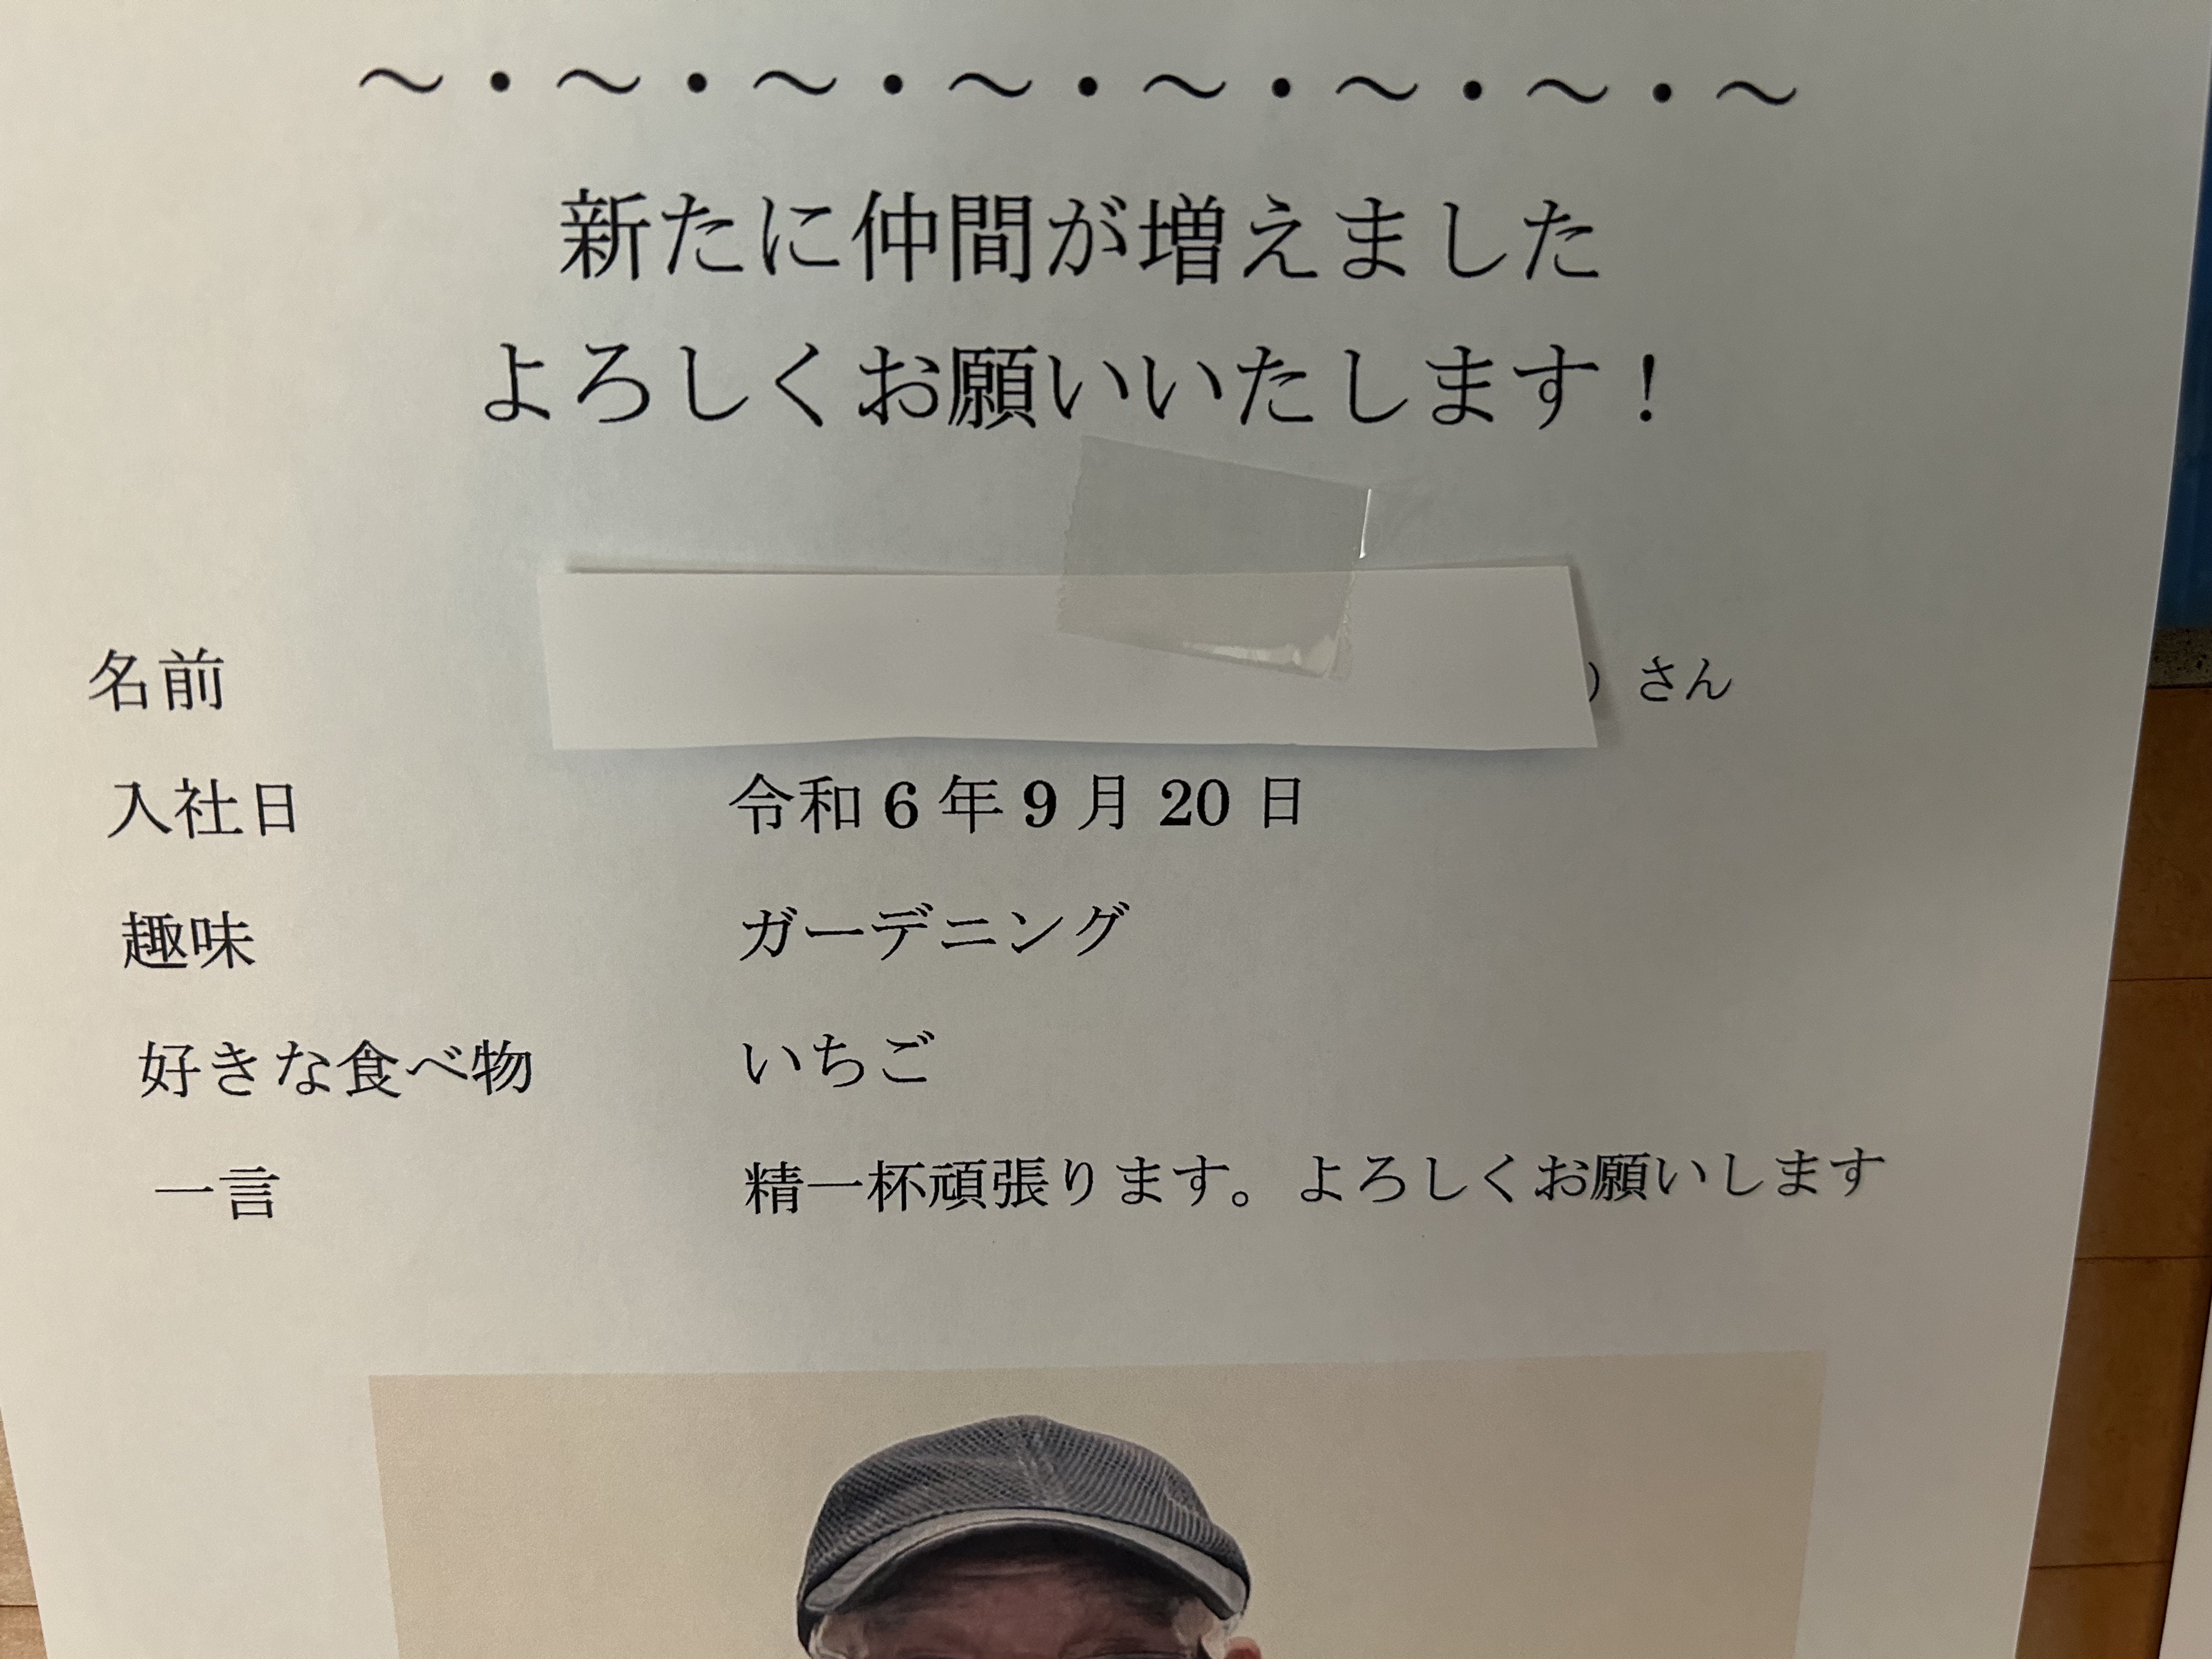 ～・～・～・～・～・～・～・～
新たに仲間が増えました
よろしくお願いいたします！
名前 ）さん
入社日 令和6年9月20日
趣味 ガーデニング
好きな食べ物 いちご
一言 精一杯頑張ります。よろしくお願いします